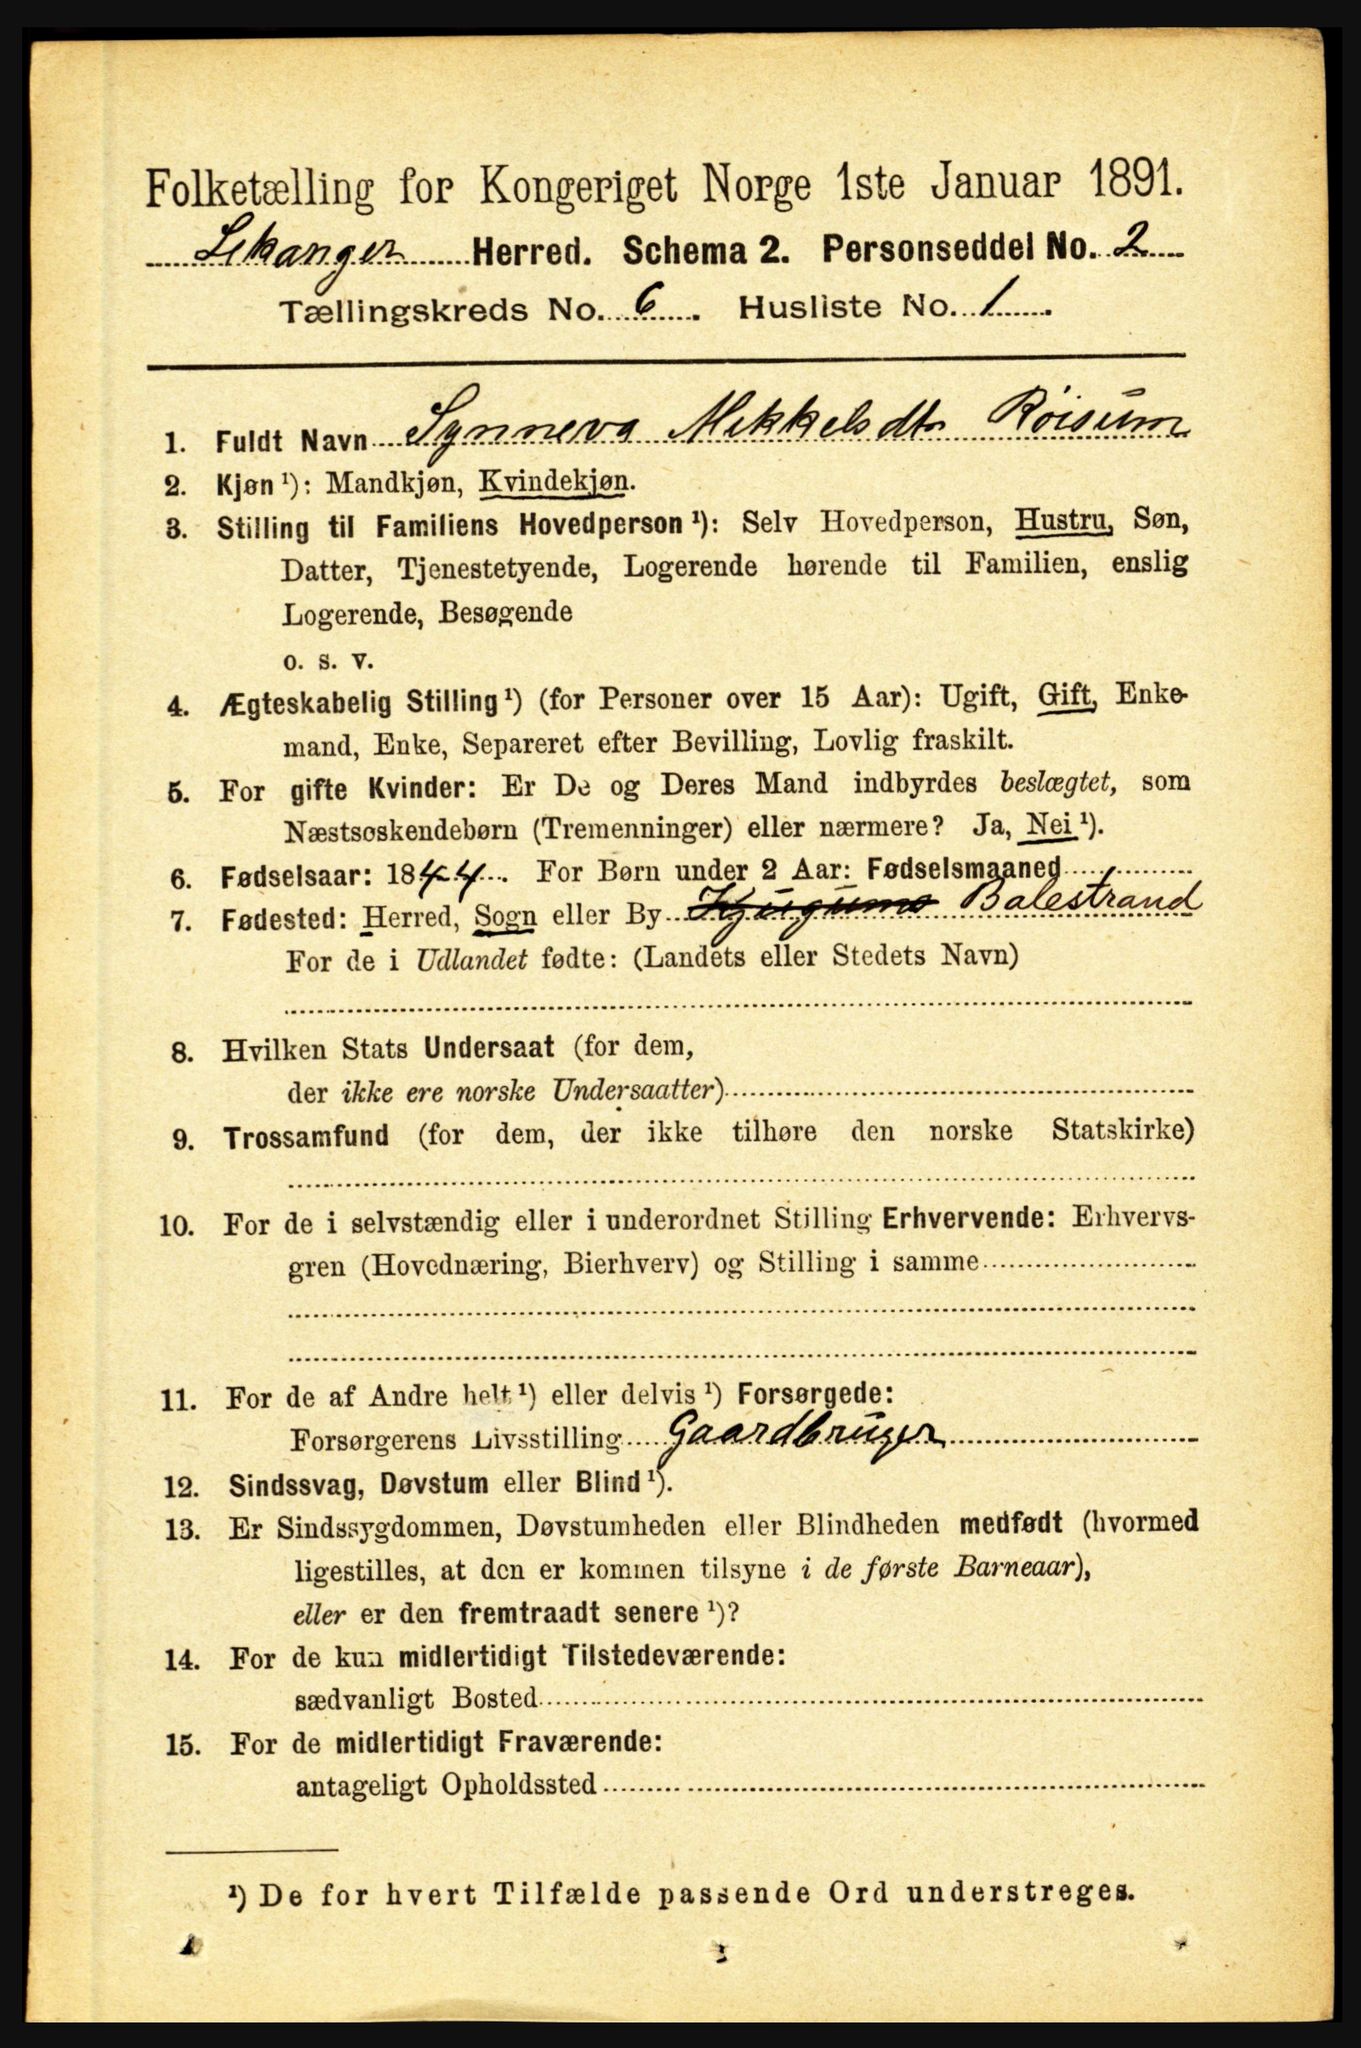 Folketælling for Kongeriget Norge 1ste Januar 1891.
Lekanger Herred. Schema 2. Personseddel No. 2
Tællingskreds No. 6. Husliste No. 1.
1. Fuldt Navn Synneva Mikkelsdtr Röisum
2. Kjøn ¹): Mandkjøn, Kvindekjøn.
3. Stilling til Familiens Hovedperson ¹): Selv Hovedperson, Hustru, Søn,
Datter, Tjenestetyende, Logerende hørende til Familien, enslig
Logerende, Besøgende
o. s. v.
4. Ægteskabelig Stilling ¹) (for Personer over 15 Aar): Ugift, Gift, Enke-
mand, Enke, Separeret efter Bevilling, Lovlig fraskilt.
5. For gifte Kvinder: Er De og Deres Mand indbyrdes beslægtet, som
Næstsøskendebørn (Tremenninger) eller nærmere? Ja, Nei ¹).
6. Fødselsaar: 1844. For Børn under 2 Aar: Fødselsmaaned
7. Fødested: Herred, Sogn eller By Balestrand
For de i Udlandet fødte: (Landets eller Stedets Navn)
8. Hvilken Stats Undersaat (for dem,
der ikke ere norske Undersaatter)
9. Trossamfund (for dem, der ikke tilhøre den norske Statskirke)
10. For de i selvstændig eller i underordnet Stilling Erhvervende: Erhvervs-
gren (Hovednæring, Bierhverv) og Stilling i samme
11. For de af Andre helt ¹) eller delvis ¹) Forsørgede:
Forsørgerens Livsstilling Gaardbruger
12. Sindssvag, Døvstum eller Blind ¹).
13. Er Sindssygdommen, Døvstumheden eller Blindheden medfødt (hvormed
ligestilles, at den er kommen tilsyne i de første Barneaar),
eller er den fremtraadt senere ¹)?
14. For de kun midlertidigt Tilstedeværende:
sædvanligt Bosted
15. For de midlertidigt Fraværende:
antageligt Opholdssted
¹) De for hvert Tilfælde passende Ord understreges.